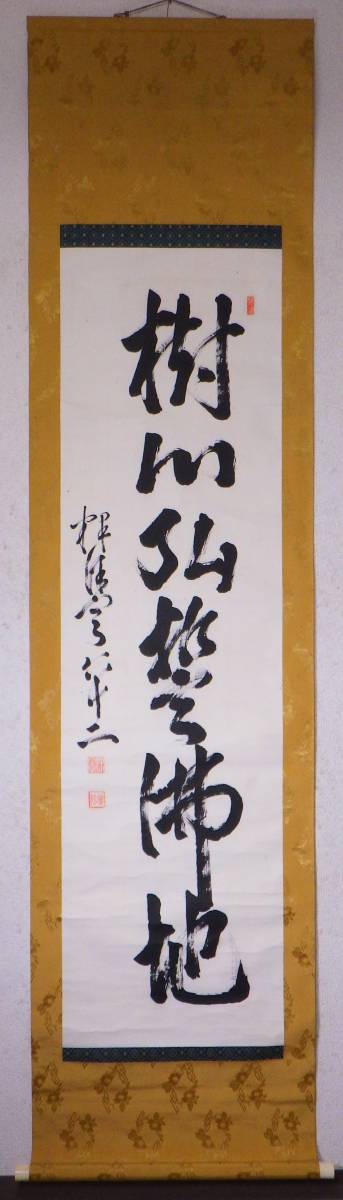 樹心弘誓佛地
八十二